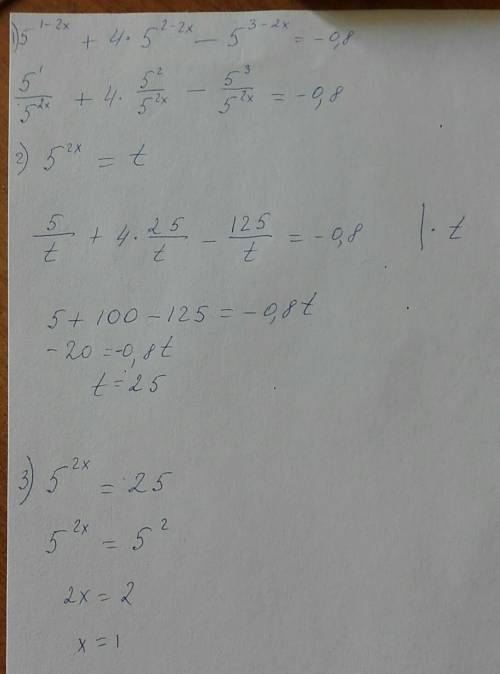 1) 5^{1-2x} + 4 · 5^{2-2x} - 5^{3-2x} = -0,8
5^1/5^{2x} + 4 · 5^2/5^{2x} - 5^3/5^{2x} = -0,8
2) 5^{2x} = t
5/t + 4 · 25/t - 125/t = -0,8 | · t
5 + 100 - 125 = -0,8t
-20 = -0,8t
t = 25
3) 5^{2x} = 25
5^{2x} = 5^2
2x = 2
x = 1